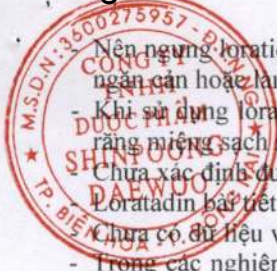 M.S.D.N: 3600275957 - Đ
CÔNG TY
TNHH
DƯỢC PHẨM
SHINPOONG
DAEWOO
TP. BIÊN HÒA - T. ĐỒNG NAI
- Nên ngưng lorati
ngăn cản hoặc làm
- Khi sử dụng lora
răng miệng sạch
- Chưa xác định đư
- Loratadin bài tiết
- Chưa có dữ liệu v
- Trong các nghiên